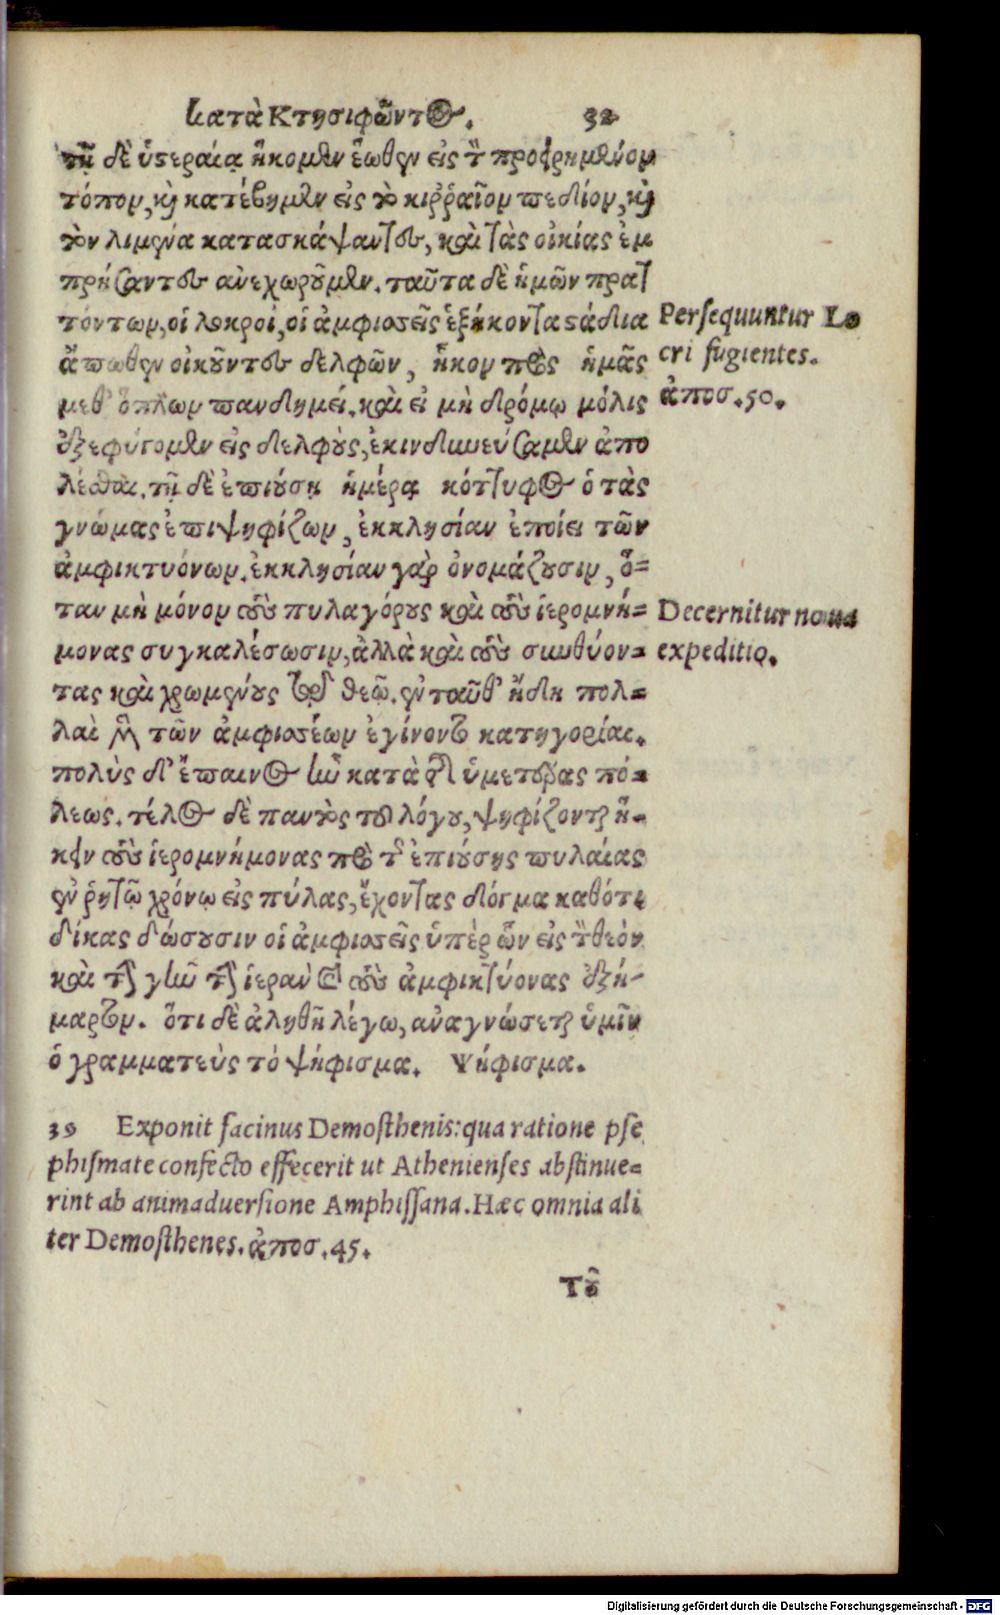 κατὰ Κτησιφῶντος. 32
τῇ δὲ ὑστεραίᾳ ἥκομεν ἕωθεν εἰς τὸν προειρημένον
τόπον, καὶ κατέβημεν εἰς τὸ κιῤῥαῖον πεδίον, καὶ
τὸν λιμένα κατασκάψαντες, καὶ τὰς οἰκίας ἐμ
πρήσαντες ἀνεχωροῦμεν. ταῦτα δὲ ἡμῶν πρατ
τόντων, οἱ λοκροὶ, οἱ ἀμφισσεῖς ἑξήκοντα στάδια
ἄπωθεν οἰκοῦντες δελφῶν, ἧκον πρὸς ἡμᾶς
μεθ' ὅπλων πανδημεί. καὶ εἰ μὴ δρόμῳ μόλις
ἐξεφύγομεν εἰς δελφοὺς, ἐκινδυνεύσαμεν ἀπο
λέσθαι. τῇ δὲ ἐπιούσῃ ἡμέρᾳ κόττυφος ὁ τὰς
γνώμας ἐπιψηφίζων, ἐκκλησίαν ἐποίει τῶν
ἀμφικτυόνων. ἐκκλησίαν γὰρ ὀνομάζουσιν, ὅ=
ταν μὴ μόνον τοὺς πυλαγόρους καὶ τοὺς ἱερομνή=
μονας συγκαλέσωσιν, ἀλλὰ καὶ τοὺς συνθύον=
τας καὶ χρωμένους τῷ θεῷ. ἐνταῦθ' ἤδη πολ=
λαὶ μὲν τῶν ἀμφισσέων ἐγίνοντο κατηγορίαι.
πολὺς δ' ἔπαινος ἦν κατὰ τῆς ὑμετέρας πό=
λεως. τέλος δὲ παντὸς τοῦ λόγου, ψηφίζονται ἥ=
κειν τοὺς ἱερομνήμονας πρὸ τῆς ἐπιούσης πυλαίας
ἐν ῥητῷ χρόνῳ εἰς πύλας, ἔχοντας δόγμα καθότι
δίκας δώσουσιν οἱ ἀμφισσεῖς ὑπὲρ ὧν εἰς τὸν θεὸν
καὶ τὴν γῆν τὴν ἱερὰν καὶ τοὺς ἀμφικτύονας ἐξή-
μαρτον. ὅτι δὲ ἀληθῆ λέγω, ἀναγνώσεται ὑμῖν
ὁ γραμματεὺς τὸ ψήφισμα. Ψήφισμα.
Persequuntur Lo
cri fugientes.
ἀποσ. 50.
Decernitur noua
expeditio.
39 Exponit facinus Demosthenis: qua ratione pse
phismate confecto effecerit ut Athenienses abstinue=
rint ab animaduersione Amphissana. Hæc omnia ali
ter Demosthenes. ἀποσ. 45.
Τοῦ
Digitalisierung gefördert durch die Deutsche Forschungsgemeinschaft - DFG